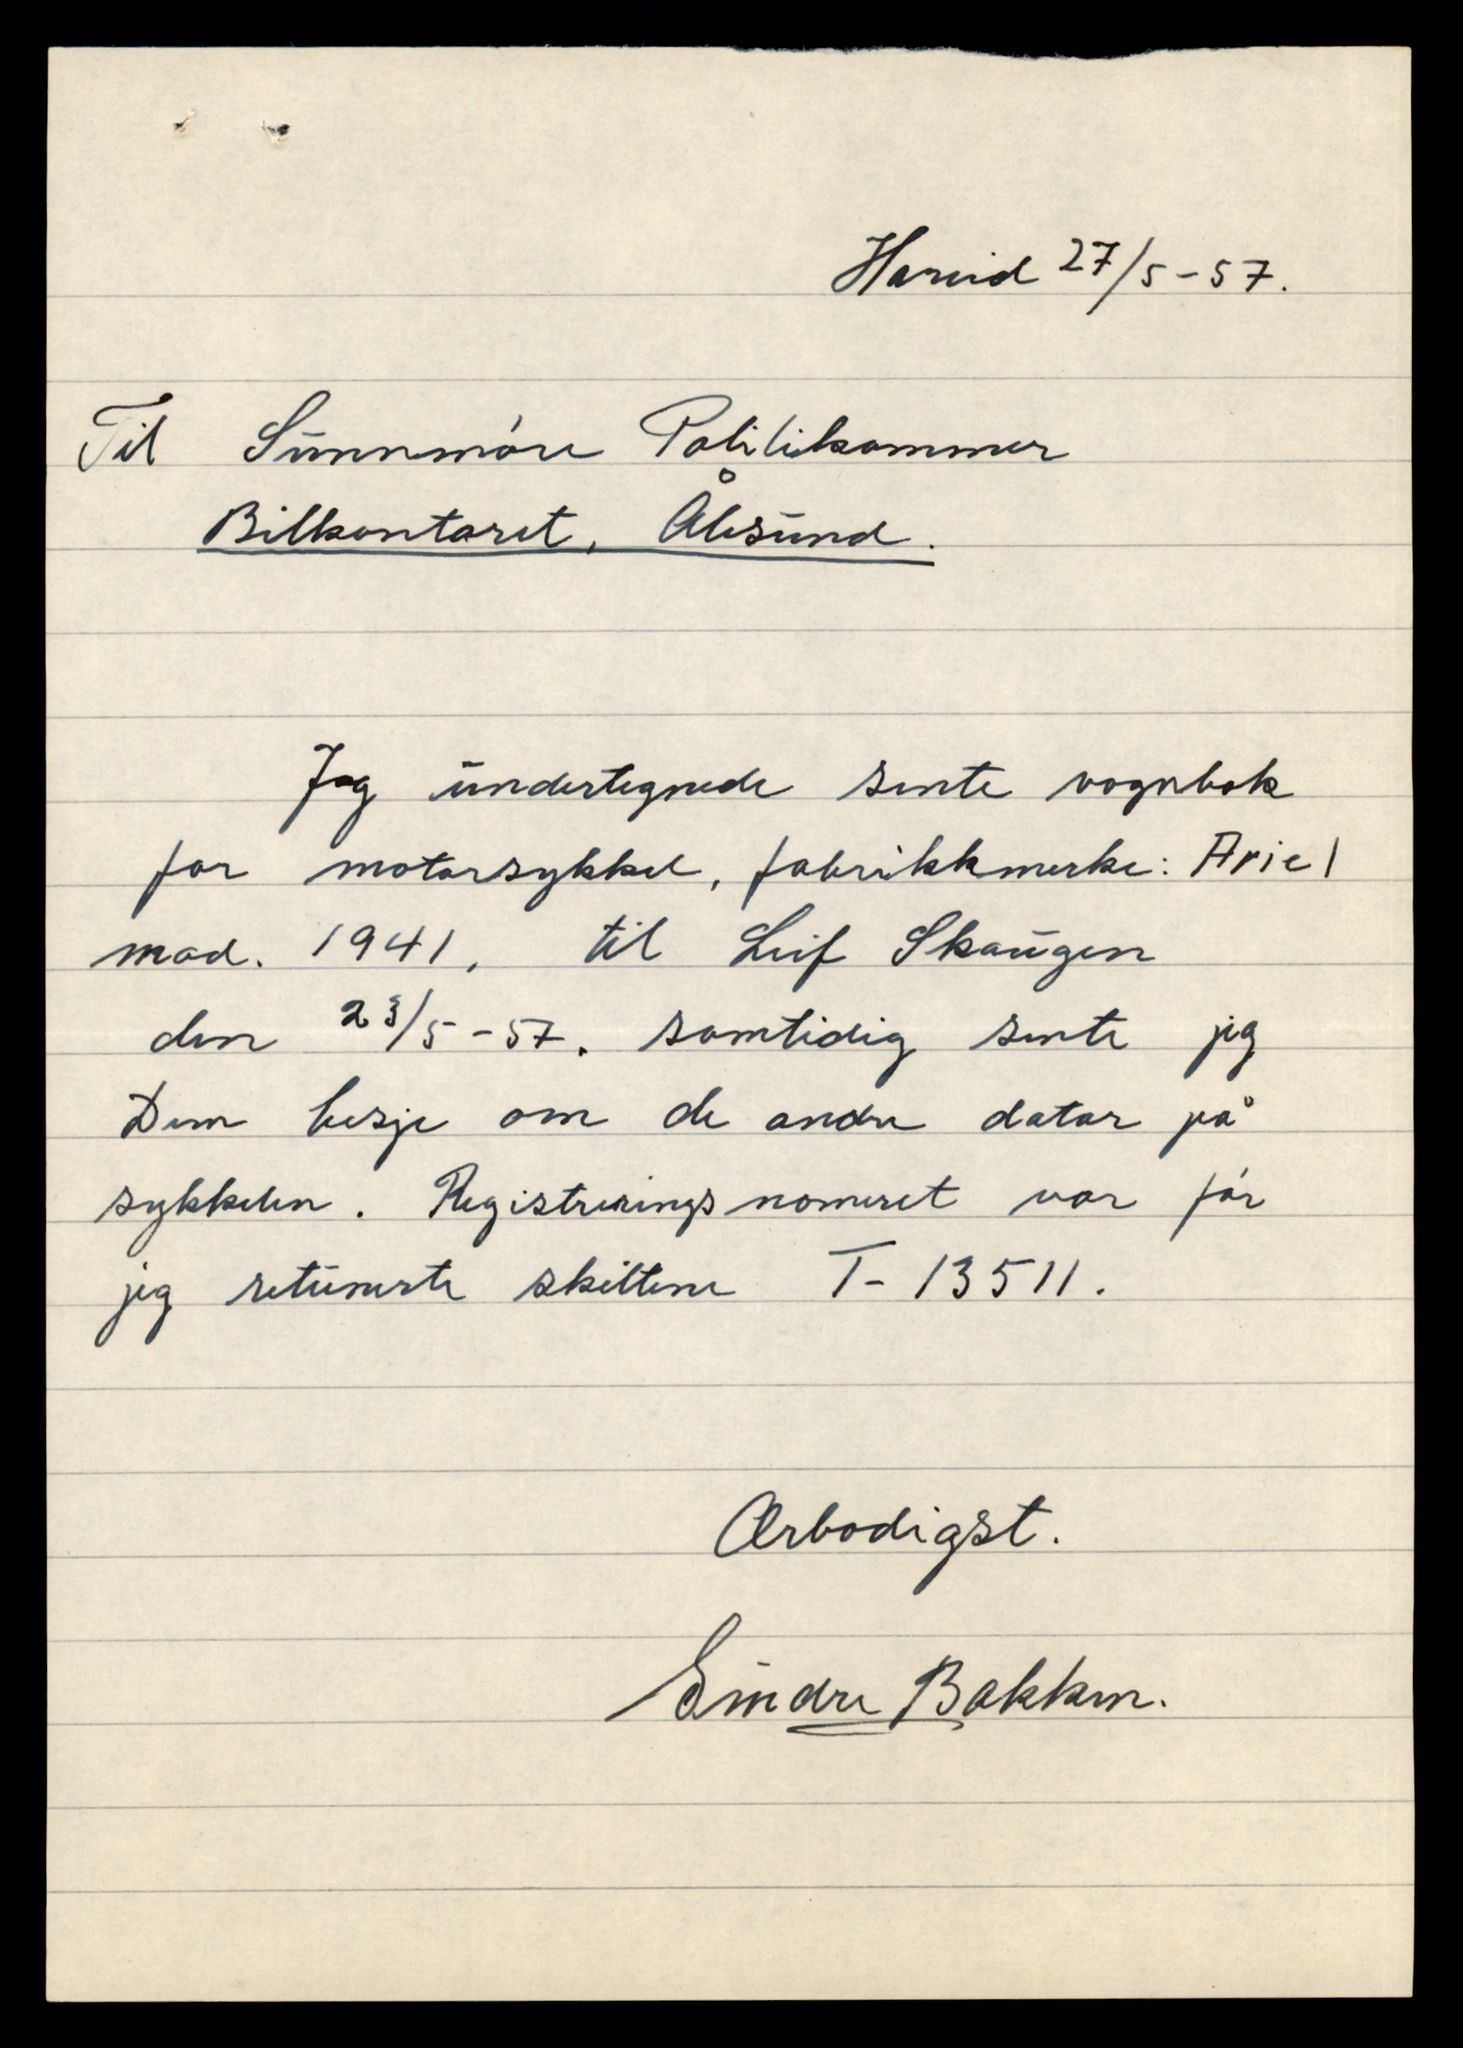 Hareid 27/5-57.
Til Sunnmóre Politikammer
Bilkontoret, Ålesund.
Jeg undertegnede sente vognbok
for motorsykkel, fabrikkmerke: Ariel
mod. 1941, til Leif Skaugen
den 23/5-57. samtidig sente jeg
Dem besje om de andre datar på
sykkelen. Registreringsnomeret var fór
jeg retunerte skiltene T-13511.
Ærbodigst.
Sindre Bakken.